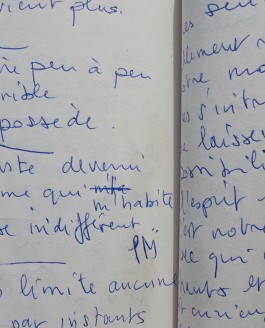 vient plus.
re peu à peu
rible
possède.
ste devenu
me qui m'habite
se indifférent "
PM
limite aucune
par instants
es seu
lement
s'intr
laisse
onibili
l'esprit
est notre
qui
ments et